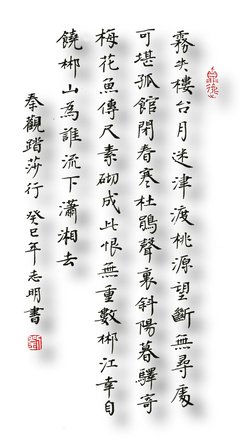 霧失樓台月迷津渡桃源望斷無尋處
可堪孤館閉春寒杜鵑聲裏斜陽暮驛寄
梅花魚傳尺素砌成此恨無重數郴江幸自
饒郴山為誰流下瀟湘去
秦觀踏莎行 癸巳年志明書